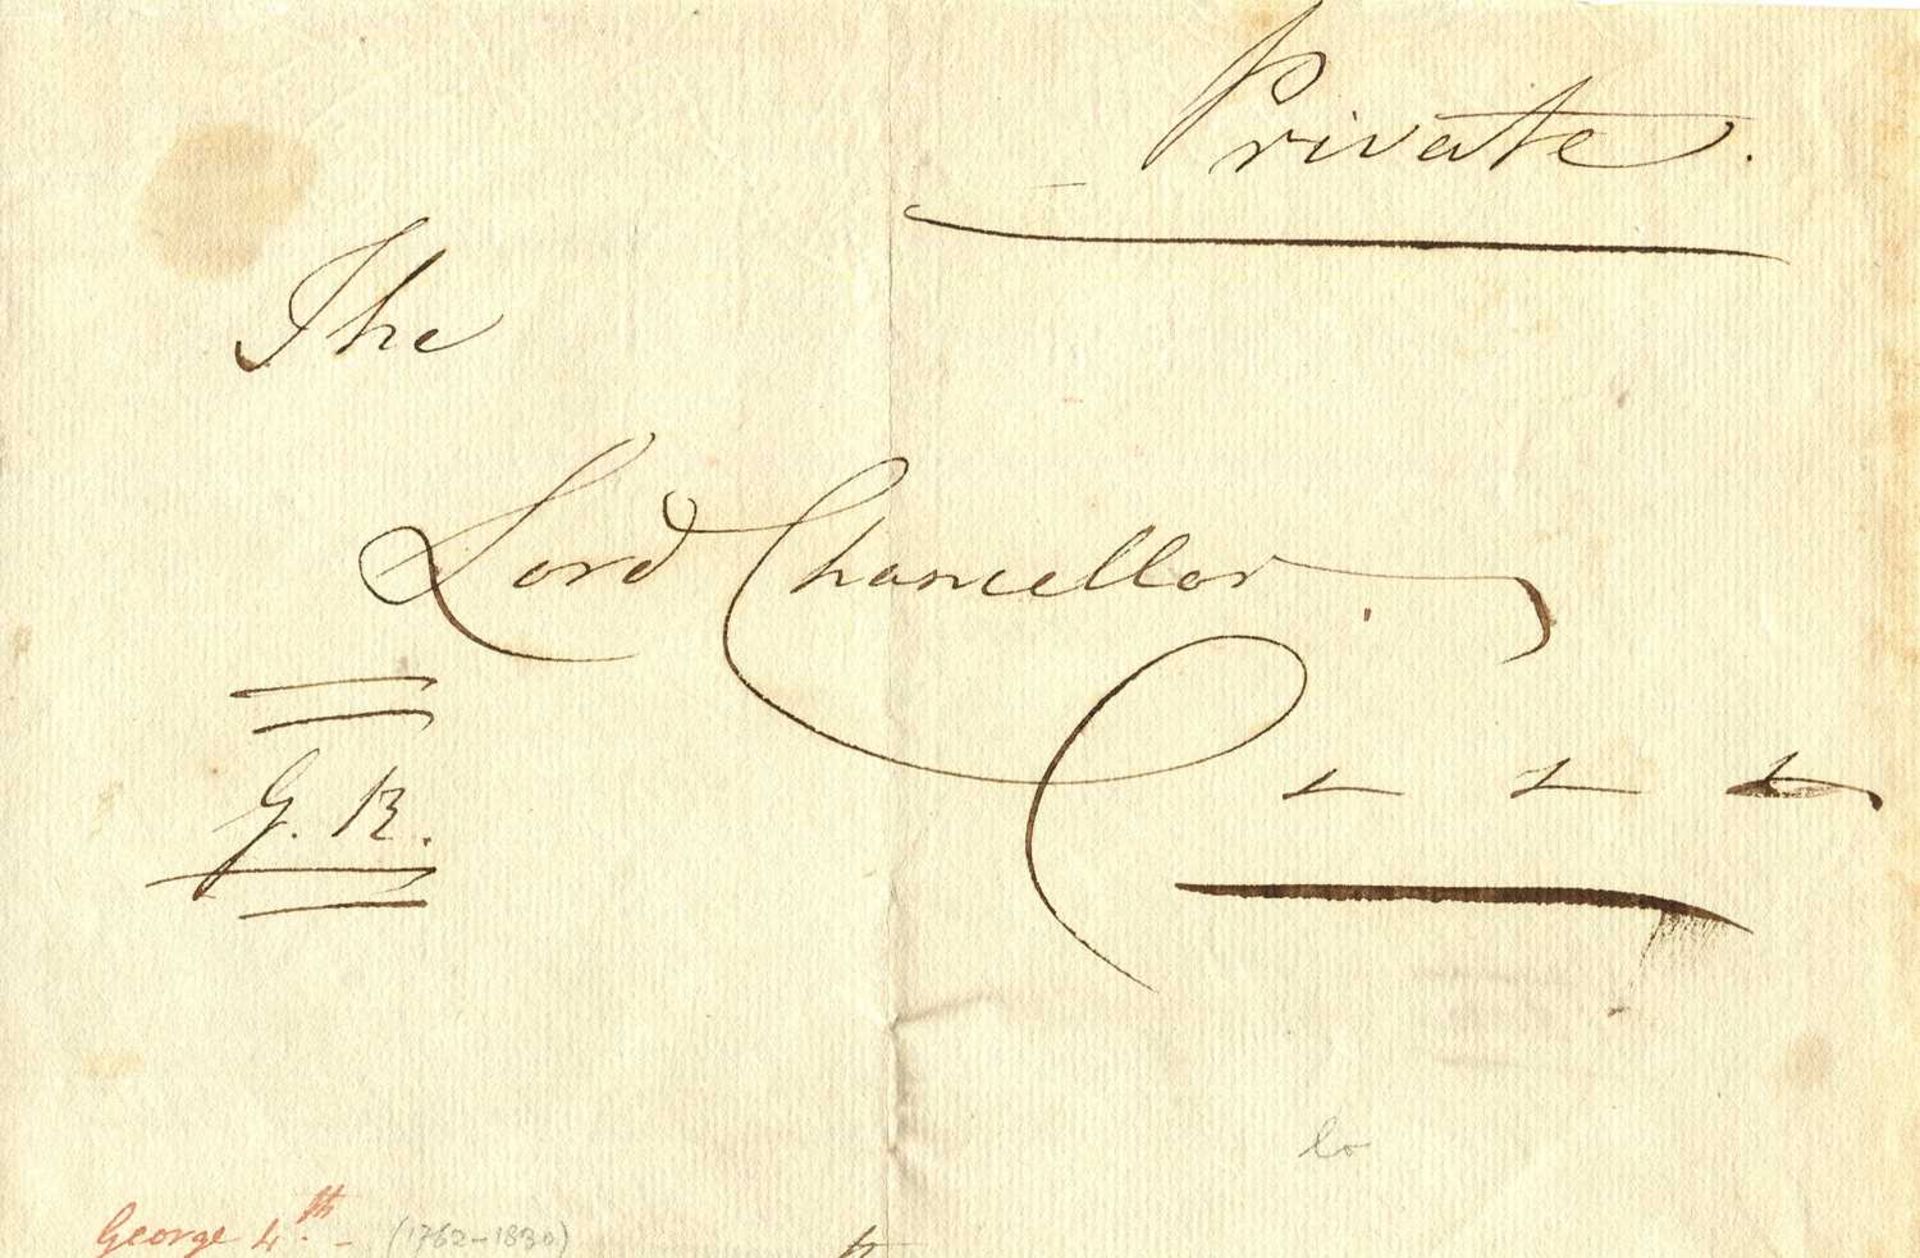 Private.
The
Lord Chancellor.
G. R.
George 4.th - (1762-1830)